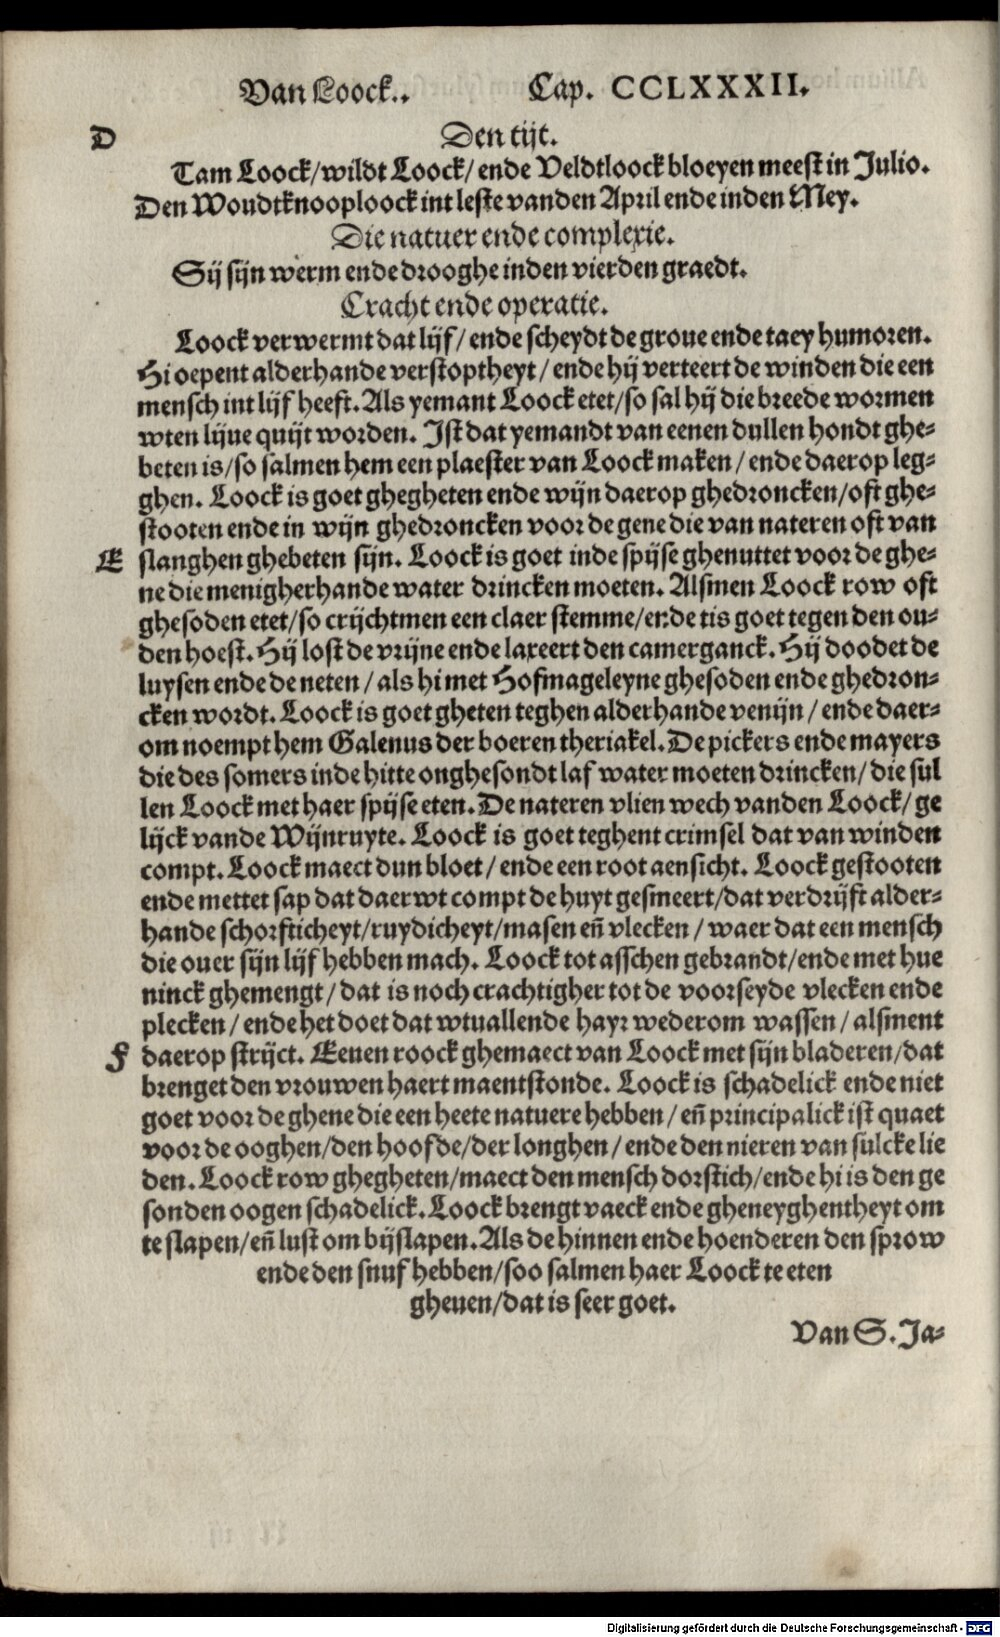 Van Loock.. Cap. CCLXXXII.
D
Den tijt.
Tam Loock/wildt Loock/ ende Veldtloock bloeyen meest in Julio.
Den Woudtknooploock int leste vanden April ende inden Mey.
Die natuer ende complexie.
Sij sijn werm ende drooghe inden vierden graedt.
Cracht ende operatie.
Loock verwermt dat lijf/ ende scheydt de groue ende taey humoren.
Hi oepent alderhande verstoptheyt/ ende hij verteert de winden die een
mensch int lijf heeft. Als yemant Loock etet/so sal hij die breede wormen
wten lijue quijt worden. Ist dat yemandt van eenen dullen hondt ghe-
beten is/so salmen hem een plaester van Loock maken/ ende daerop leg-
ghen. Loock is goet ghegheten ende wijn daerop ghedroncken/oft ghe-
stooten ende in wijn ghedroncken voor de gene die van nateren oft van
E slanghen ghebeten sijn. Loock is goet inde spijse ghenuttet voor de ghe-
ne die menigherhande water drincken moeten. Alsmen Loock row oft
ghesoden etet/so crijchtmen een claer stemme/ende tis goet tegen den ou-
den hoest. Hij lost de vrijne ende laxeert den camerganck. Hij doodet de
luysen ende de neten/ als hi met Hofmageleyne ghesoden ende ghedron-
cken wordt. Loock is goet gheten teghen alderhande venijn/ ende daer-
om noempt hem Galenus der boeren theriakel. De pickers ende mayers
die des somers inde hitte onghesondt laf water moeten drincken/ die sul
len Loock met haer spijse eten. De nateren vlien wech vanden Loock/ ge
lijck vande Wijnruyte. Loock is goet teghent crimsel dat van winden
compt. Loock maect dun bloet/ ende een root aensicht. Loock gestooten
ende mettet sap dat daer wt compt de huyt gesmeert/dat verdrijft alder-
hande schorfticheyt/ruydicheyt/masen eñ vlecken/ waer dat een mensch
die ouer sijn lijf hebben mach. Loock tot asschen gebrandt/ende met hue
ninck ghemengt/ dat is noch crachtigher tot de voorseyde vlecken ende
plecken/ ende het doet dat wtuallende hayr wederom wassen/ alsment
F daerop strijct. Eenen roock ghemaect van Loock met sijn bladeren/dat
brenget den vrouwen haert maentstonde. Loock is schadelick ende niet
goet voor de ghene die een heete natuere hebben/ eñ principalick ist quaet
voor de ooghen/den hoofde/der longhen/ ende den nieren van sulcke lie
den. Loock row ghegheten/maect den mensch dorstich/ende hi is den ge
sonden oogen schadelick. Loock brengt vaeck ende gheneyghentheyt om
te slapen/eñ lust om bijslapen. Als de hinnen ende hoenderen den sprow
ende den snuf hebben/soo salmen haer Loock te eten
gheuen/dat is seer goet.
Van S. Ja-
Digitalisierung gefördert durch die Deutsche Forschungsgemeinschaft - DFG